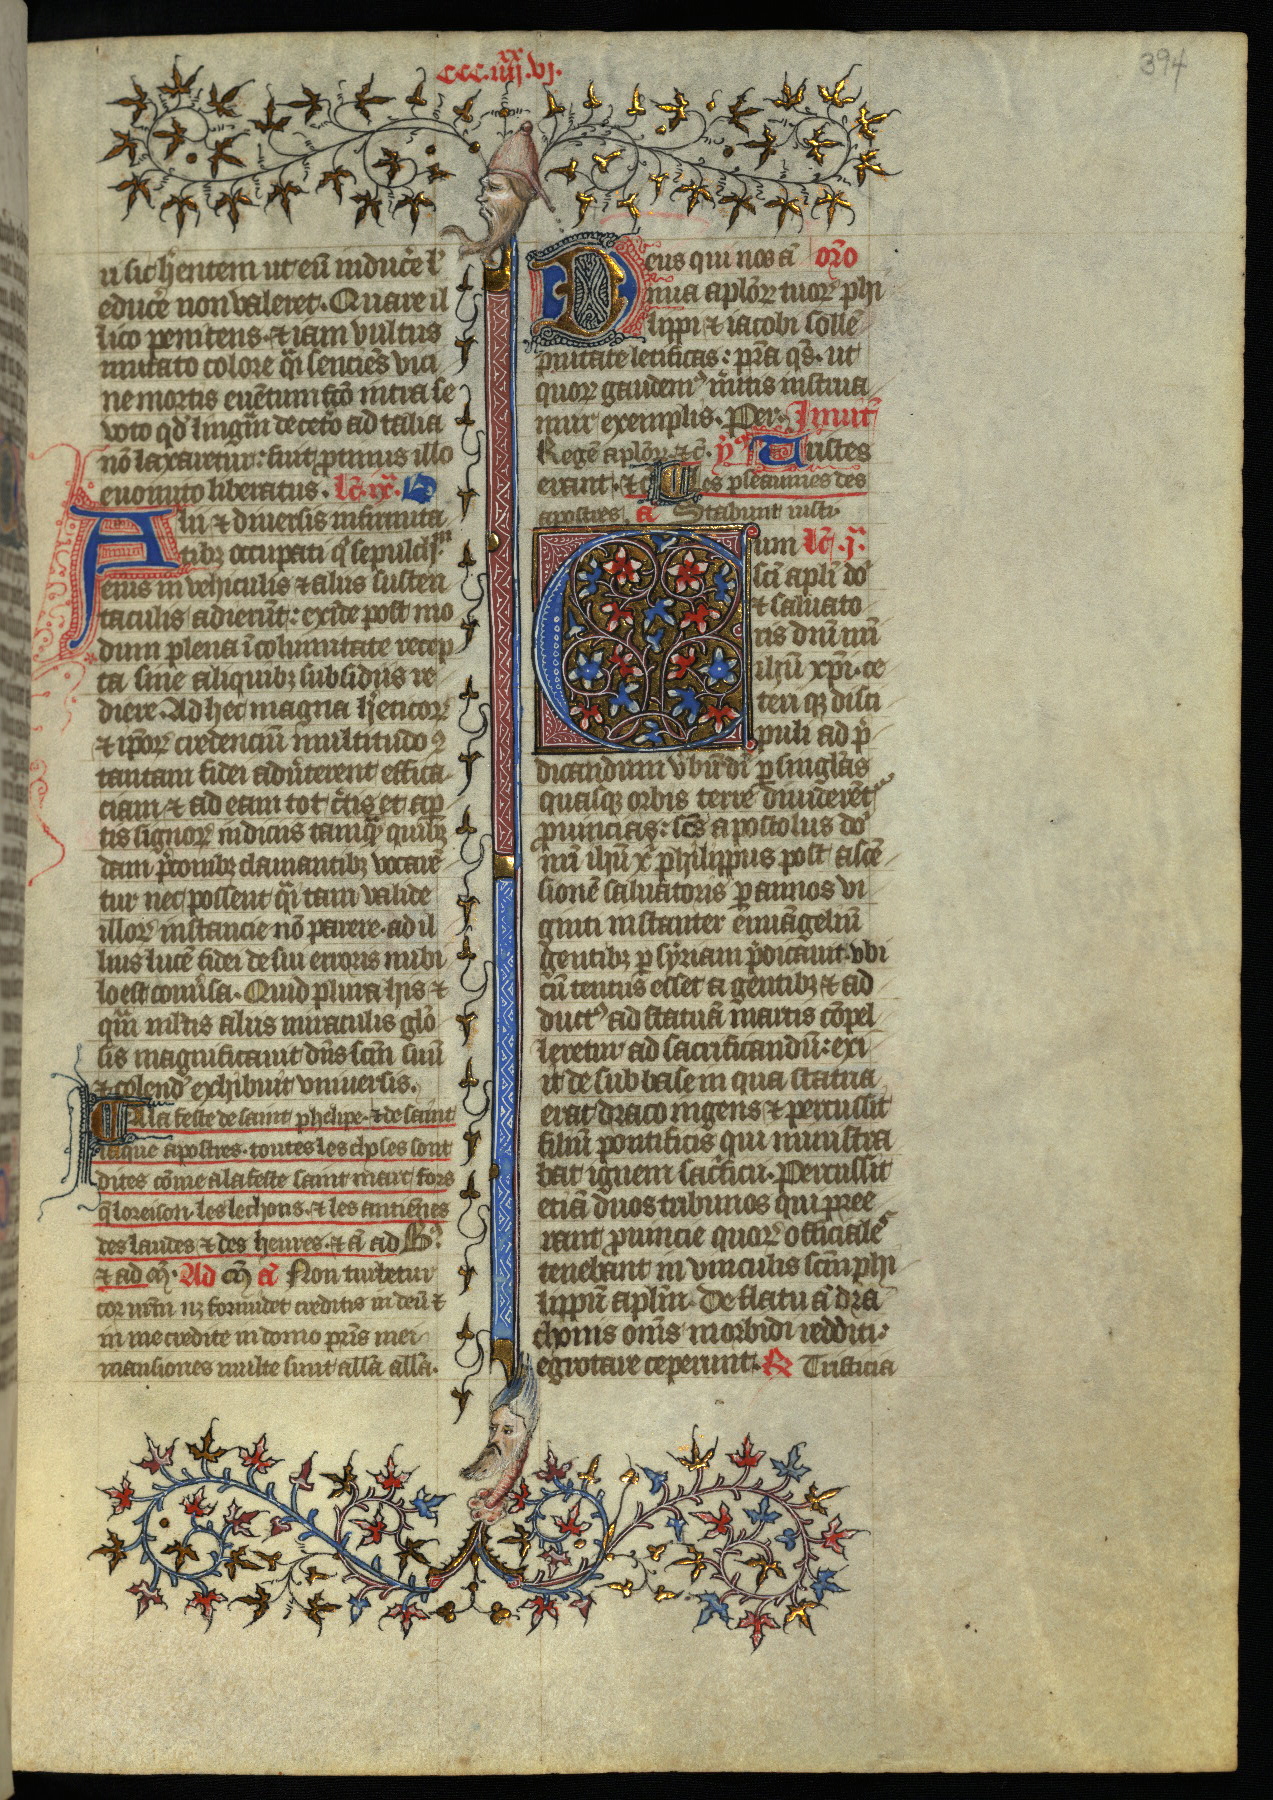 ccc.iiij.xx vj.
394
u sic hentem ut eū inducẽ l'
educẽ non valeret. Quare il
lico penitens. ⁊ iam vultus
mutato colore q̃i senciẽs vici
ne mortis euẽtum fc̃o intra se
voto qd' lingm̃ de cetõ ad talia
nõ laxaretur: fuit p̱tinus illo
euomito liberatus. lc̃. ix̃.
Alii ⁊ diuersis infirmita
tibȝ occupati
enis in vehiculis ⁊ aliis susten
taculis adierũt: exĩde post mo
dum plena ĩcolumitate recep
ta sine aliquibȝ subsidiis re
diere. Ad hec magna h'eticoꝝ
⁊ ip̃oꝝ credenciũ multitudo
tantam fidei adũterent effica
ciam ⁊ ad eam tot c̃tis et ap̱
tis signoꝝ indiciis tamq̃ quibȝ
dam p̃conibȝ clamantibȝ vocarẽ
tur nec possent q̃i tam valide
illoꝝ instancie nõ parere. ad il
lius lucẽ fidei de sui erroris nubi
lo est conũsa. Quid plura his ⁊
q̃m ml̃tis aliis miraculis glõ
sis magnificauit dñs sc̃m suũ
⁊ colend' exhibuit vniuersis.
A la feste de saint phelipe. ⁊ de saint
iaque apostres. toutes les choses sont
dites cõme a la feste saint marc fors
q̃ loreison. les lechons. ⁊ les antiẽnes
des laudes ⁊ des heures. ⁊ ã ad B.
⁊ ad m̃. Ad m̃ ã Non turbetur
cor vr̃m nȝ formidet creditis in deũ ⁊
in me credite in domo pr̃is mei
mansiones multe sunt all'a all'a.
Deus qui nos ã or̃o
nua apl'oꝝ tuoꝝ phi
lippi ⁊ iacobi sollẽ
pnitate letificas: p̃ra q̃s. ut
quoꝝ gaudemꝰ m̃itis instrua
mur exemplis. Per. Inuit'
Regẽ apl'oꝝ ⁊ c̃. ỹ Tristes
erant. ⁊ c̃ Les pseaumes des
apostres. ã Stabunt iusti.
Cum lc̃. j̃.
sc̃i apl'i dõ
⁊ saluato
ris dñi nr̃i
ihũ xp̃i. ce
teri qȝ disci
puli ad p̃
dicandum v̾bũ di' p̱ singl'as
quasqȝ orbis terre diuiderẽtꝰ
p̱uincias: sc̃s apostolus dõ
mi ihũ x̃ philippus post ascẽ
sionẽ saluatoris p̱ annos vi
ginti instanter ewãgeliũ
gentibȝ p̱ syriam p̃dicauit. vbi
cũ tentus esset a gentibȝ ⁊ ad
ductꝰ ad statuã martis cõpel
leretur ad sacrificandũ: exi
it de sub base in qua statua
erat draco ingens ⁊ percussit
filiũ pontificis qui ministra
bat ignem sacrificii. Percussit
etiã duos tribunos qui pree
rant p̱uincie quoꝝ officiales
tenebant in vinculis sc̃m phi
lippũ apl'm. De flatu ã dra
chonis om̃s morbidi redditi.
egrotare ceperunt. R̃ Tristicia